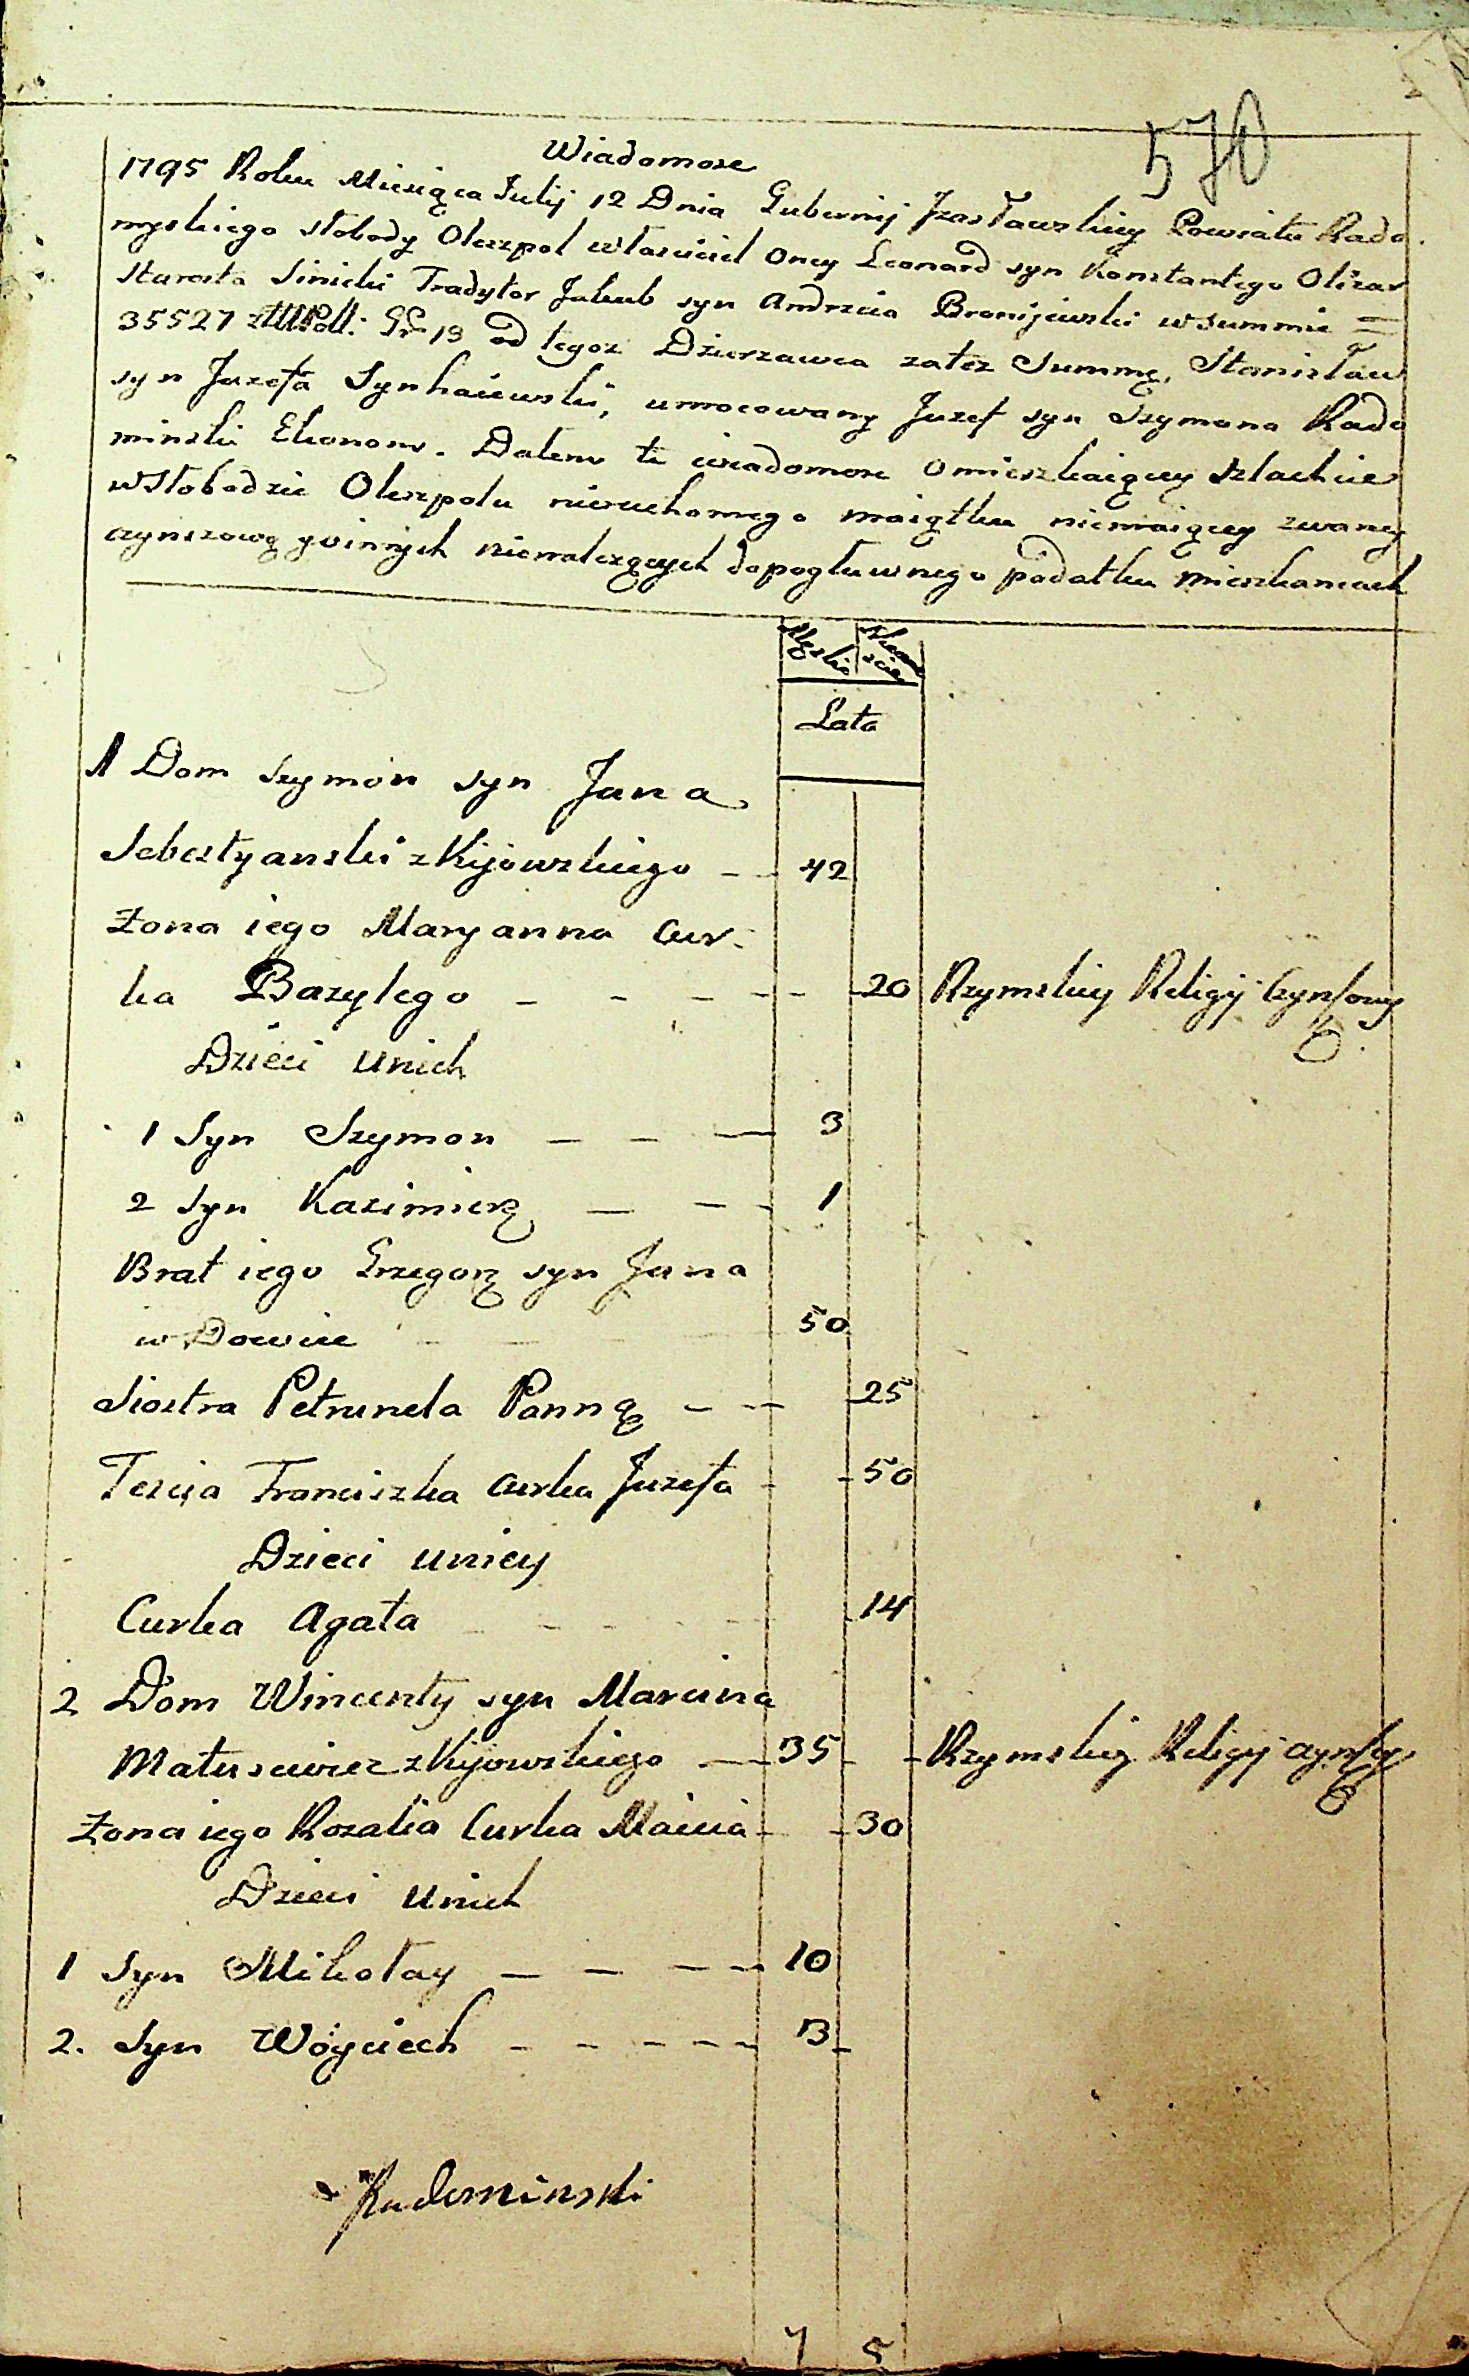 570
Wiadomosc
1795 Roku Miesiąca Julij 12 Dnia Gubernij Jzasławskiey Powiatu Rado
myskiego słobody Oleszpol własciciel oney Leonard syn Konstantego Olizar
Starosta Sinicki Tradytor Jakub syn Andrzeia Bronijewski w summie =
35527 Gr 13 od tegoz Dzierzawca zatez Summę, Stanisław
syn Juzefa Synhaiewski, umocowany Juzef syn Szymona Rado
minski Ekonom. Dalem te wiadomosc o mieszkaiącey szlachcie
w słobodzie Oleszpolu nieruchomego maiątku niemaiącey zwaney
czynszową y innych nienalezących do pogłuwnego podatku mieszkancach
Męskie Zenskie
Lata
1 Dom Szymon syn Jana
Sebestyanski z Kijowskiego - - 42
Zona iego Maryanna Cur-
ka Bazylego - - - - - 20 Rzymskiey Religij Czynsowy
Dzieci u nich
1 Syn Szymon - - - 3
2 Syn Kazimierz - - - 1
Brat iego Grzegorz syn Jana
wdowiec - - - 50
Siostra Petrunela Panna - - - 25
Tescia Franciszka Curka Juzefa - - 50
Dzieci u niey
Curka Agata - - - - 14
2 Dom Wincenty syn Marcina
Matusewicz z Kijowskiego - 35 - - Rzymskiey Religij czynsowy
Zona iego Rozalia Curka Macieia - - 30
Dzieci u nich
1 Syn Mikołay - - - - 10
2. Syn Woyciech - - - - - 3 -
Radominski
7 5